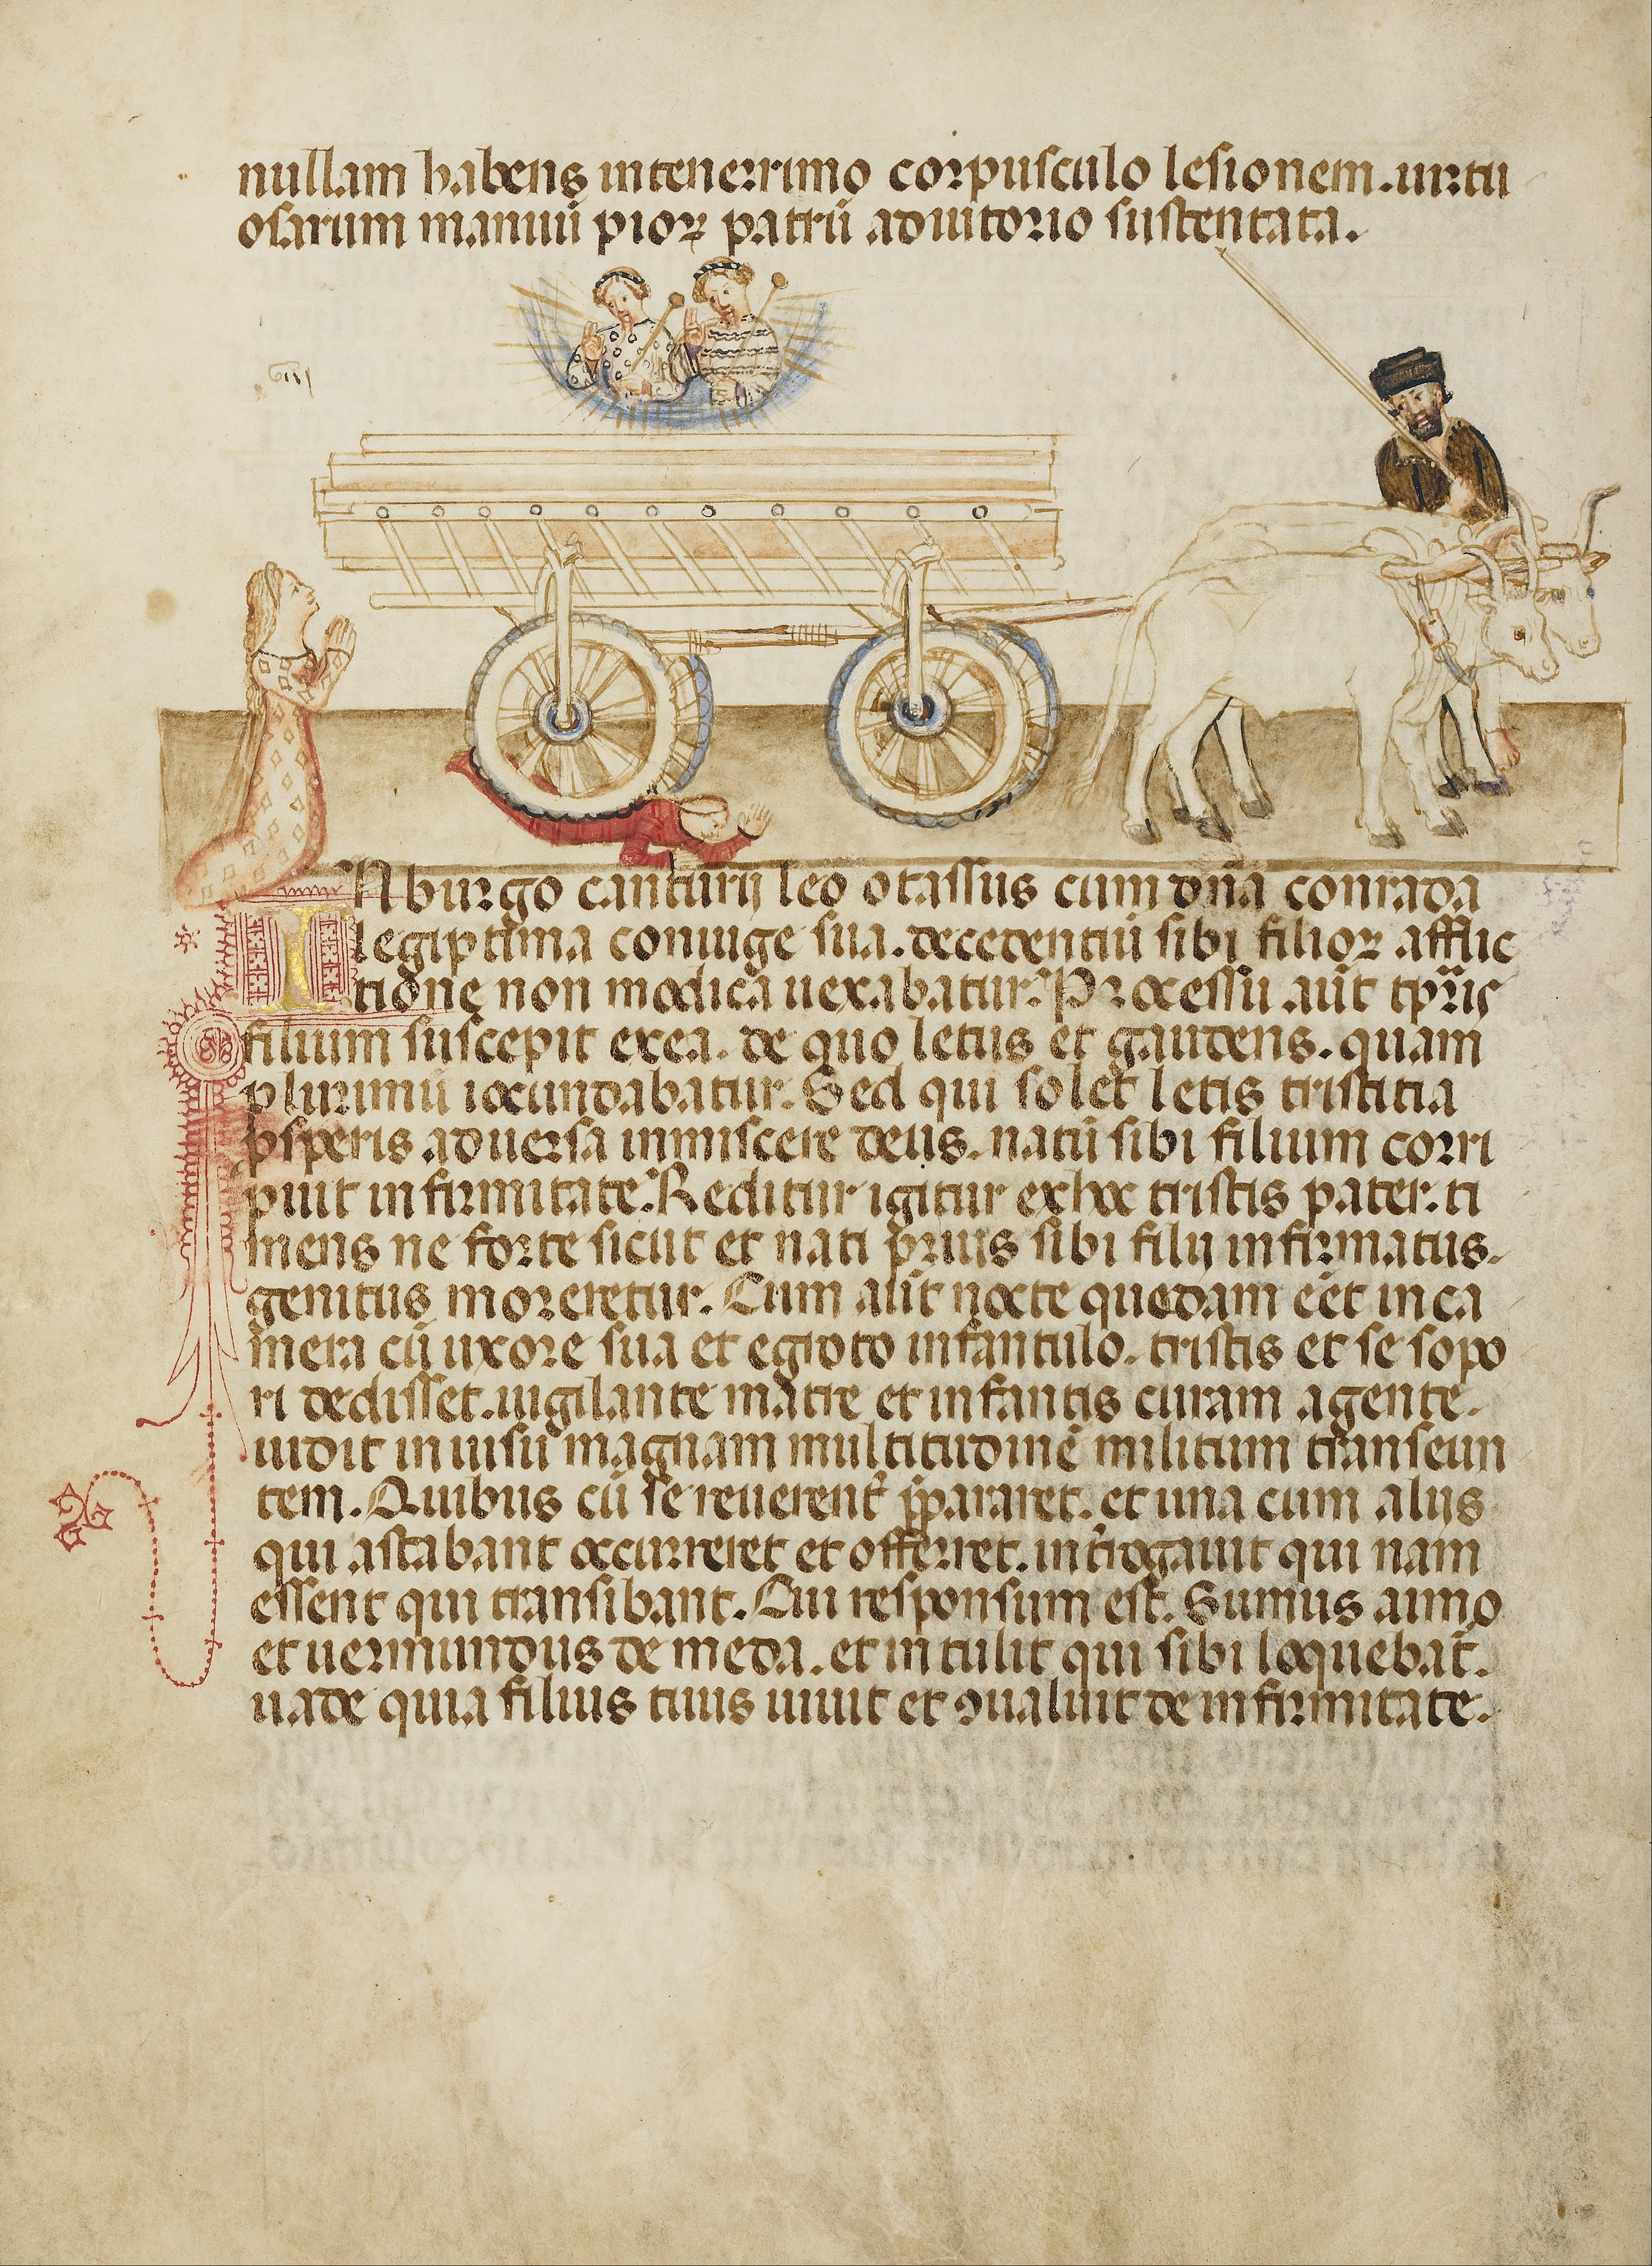 nullam habens in tenerrimo corpusculo lesionem. uirtu
osarum manuū pioꝝ patrū adiutorio sustentata.
IN burgo canturij leo otassus cum dn̄a conrada
legiptima coniuge sua. decedentiū sibi filioꝝ afflic
tione non modica uexabatur. Processu aūt tp̄ris
filium suscepit ex ea. de quo letus et gaudens. quam
plurimū iocundabatur. Sed qui solet letis tristitia
ꝓsperis aduersa inmiscere deus. natū sibi filium corri
puit infirmitate. Reditur igitur ex hoc tristis pater. ti
mens ne forte sicut et nati prius sibi filij infirmatus.
genitus moreretur. Cum aūt nocte quedam eēt in ca
mera cū uxore sua et egroto infantulo. tristis et se sopo
ri dedisset. uigilante matre et infantis curam agente.
uidit in uisu magnam multitudinē militum transeun
tem. Quibus cū se reuerent᾿ p̄pararet. et una cum alijs
qui astabant occurreret et offerret. int᾿rogauit qui nam
essent qui transibant. Cui responsum est. Sumus aimo
et uermundus de meda. et intulit qui sibi loquebat᾿.
uade quia filius tuus uiuit et ꝯualuit de infirmitate.